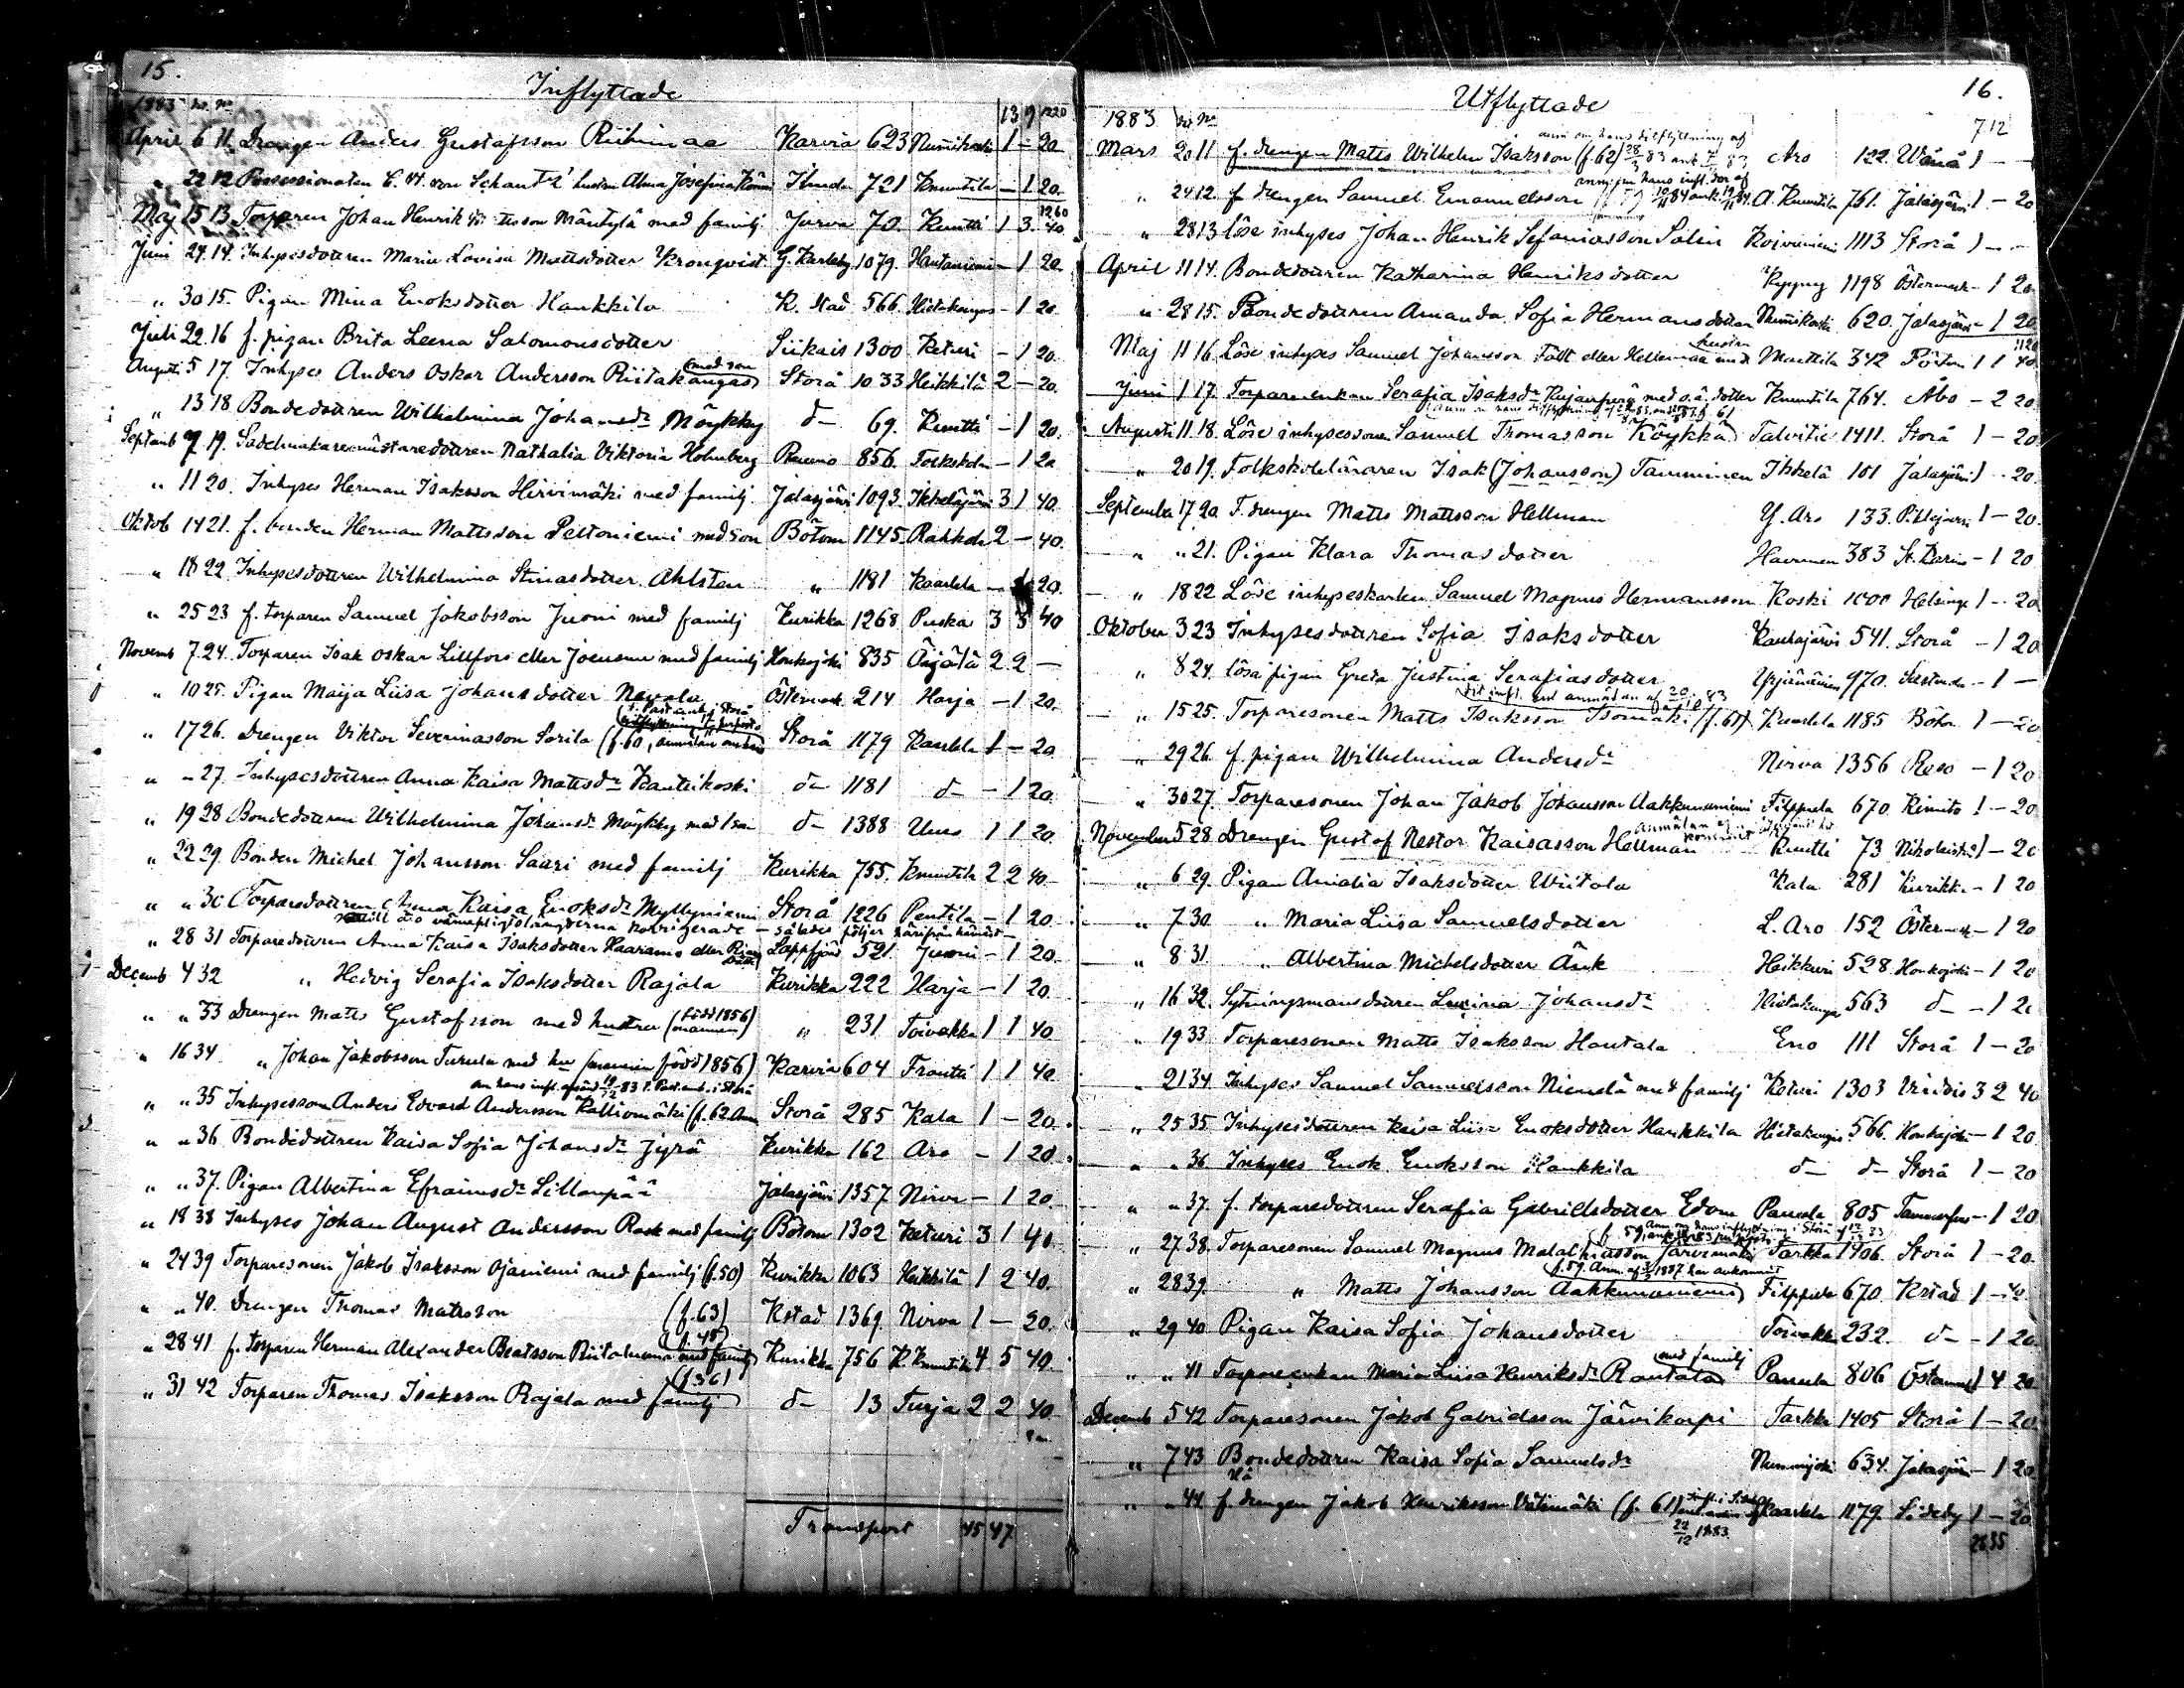 15.
Inflyttade
1883 13 9 1220
April 6 11 Drengen Anders Gustafsson Riihimaa Karvia 623 Nummikoski 1 - 20
" 22 12 Possessionaten C. von Schantz' hustru Alma Josefina 721 Knuutila - 1 20
Maj 15 13 Torparen Johan Henrik Mäntylä med familj Jurva 70 Knutti 1 3 40
Juni 24 14 Inhysesdottren Maria Lovisa Mattsdotter Kronqvist G. Karleby 1079 Hautaniemi - 1 20
" 30 15 Pigan Mina Enoksdotter Hankkila K. stad 566 Hietakangas - 1 20
Juli 22 16 f. pigan Brita Leena Salomonsdotter Siikais 1300 Keturi - 1 20
Augusti 5 17 Inhyses Anders Oskar Andersson Riitakangas (med son) Storå 1033 Heikkilä 2 - 20
" 13 18 Bondedottren Wilhelmina Johansdr Möykky d- 69 Knutti - 1 20
Septemb 7 19 Sadelmakaremästaredottren Nathalia Viktoria Holmberg Raumo 856 Folkskola - 1 20
" 11 20 Inhyses Herman Isaksson Hirvimäki med familj Jalasjärvi 1093 Ikkeläjärvi 3 1 40
Oktob 14 21 f. bonden Herman Mattsson Peltoniemi med son Bötom 1145 Rahkola 2 - 40
" 18 22 Inhysesdottren Wilhelmina Stinasdotter Ahlsten " 1181 Kaarlela - 1 20
" 25 23 f. torparen Samuel Jakobsson Juoni med familj Kurikka 1268 Puska 3 3 40
Novemb 7 24 Torparen Isak Oskar Lillfors eller Joensuu med familj Honkajoki 835 Äijälä 2 2 -
" 10 25 Pigan Maija Liisa Johansdotter Nevala Östermark 214 Harja - 1 20
" 17 26 Drengen Viktor Severinasson Sorila (f. 60, Storå 1179 Kaarlela 1 - 20
" " 27 Inhysesdottren Anna Kaisa Mattsdr Kantikoski d- 1181 d- - 1 20
" 19 28 Bondedottren Wilhelmina Johansdr Möykky med 1 son d- 1388 Uuro 1 1 20
" 22 29 Bonden Michel Johansson Saari med familj Kurikka 755 Knuutila 2 2 40
" " 30 Torparedottren Anna Kaisa Enoksdr Myllyniemi Storå 1226 Pentilä - 1 20
" 28 31 Torparedottren Anna Kaisa Isaksdotter Haavamo eller Lappfjärd 521 Juoni - 1 20
Decemb 4 32 " Hedvig Serafia Isaksdotter Rajala Kurikka 222 Harja - 1 20
" " 33 Drengen Matts Gustafsson med hustru (född 1856 mannen) " 231 Toivakka 1 1 40
" 16 34 " Johan Jakobsson Turula med hu (mannen född 1856) Karvia 604 Frantti 1 1 40
" " 35 Inhysesson Anders Edvard Andersson Kalliomäki (f. 62 Storå 285 Kala 1 - 20
" " 36 Bondedottren Kaisa Sofia Johansdr Jyrä Kurikka 162 Aro - 1 20
" " 37 Pigan Albertina Efraimsdr Sillanpää Jalasjärvi 1357 Nirva - 1 20
" 18 38 Inhyses Johan August Andersson Rask med familj Bötom 1302 Keturi 3 1 40
" 24 39 Torparesonen Jakob Isaksson Ojaniemi med familj (f. 50) Kurikka 1063 Heikkilä 1 2 40
" " 40 Drengen Thomas Mattsson (f. 63) Kstad 1369 Nirva 1 - 20
" 28 41 f. torparen Herman Alexander Beatsson Riitaluoma med familj (f. 45) Kurikka 756 K. Knuutila 4 5 40
" 31 42 Torparen Thomas Isaksson Rajala med familj (f 36) d- 13 Turja 2 2 40
Transport 45 47
16.
Utflyttade
1883 7 12
Mars 20 11 f. drengen Matts Wilhelm Isaksson (f. 62) Aro 122 1 - -
" 24 12 f drengen Samuel Emanuelsson A. Knuutila 761 Jalasjärvi 1 - 20
" 28 13 löse inhyses Johan Henrik Sefaniasson Salin Koivuniemi 1113 Storå 1 - -
April 11 14 Bondedottren Katharina Henriksdotter Kyyny 1198 Östermark - 1 20
" 28 15 Bondedottren Amanda Sofia Hermansdotter Nummikoski 620 Jalasjärvi - 1 20
Maj 11 16 Löse inhyses Samuel Johansson Fält eller Hellemaa med hustru Mnttila 342 Pörtom 1 1 40
Juni 1 17 Torpareenkan Serafia Isaksdr med o.ä. dotter Knuutila 764 Åbo - 2 20
Augusti 11 18 Löse inhysessonen Samuel Thomasson Röykkä Talvitie 1411 Storå 1 - 20
" 20 19 Folkskoleläraren Isak (Johansson) Tamminen Ikkelä 101 Jalasjärvi 1 - 20
September 17 20 F. drengen Matts Mattsson Hellman Y. Aro 133 1 - 20
" " 21 Pigan Klara Thomasdotter Havunen 383 St. Karins - 1 20
" 18 22 Löse inhyseskarlen Samuel Magnus Hermansson Koski 1000 Helsinge 1 - 20
Oktober 3 23 Inhysesdottren Sofia Isaksdotter Kauhajärvi 541 Storå - 1 20
" 8 24 lösa pigan Greta Justina Serafiasdotter Yrjänäinen 970 - 1 -
" 15 25 Torparesonen Matts Isaksson Isomäki (f. 61) Kaarlela 1185 Bötom 1 - 20
" 29 26 f. pigan Wilhelmina Andersdr Nirva 1356 Reso - 1 20
" 30 27 Torparesonen Johan Jakob Johansson Aakkunaniemi Filppula 670 Kimito 1 - 20
November 5 28 Drengen Gustaf Nestor Kaisasson Hellman Knutti 73 Nikolaistad 1 - 20
" 6 29 Pigan Amalia Isaksdotter Wiitala Kala 281 Kurikka - 1 20
" 7 30 " Maria Liisa Samuelsdotter L. Aro 152 Östermark - 1 20
" 8 31 " Albertina Michelsdotter Änk Heikkuri 528 Honkajoki - 1 20
" 16 32 Sytningsmansdottren Lusina Johansdr Hietakangas 563 d- - 1 20
" 19 33 Torparesonen Matts Isaksson Hautala Eno 111 Storå 1 - 20
" 21 34 Inhyses Samuel Samuelsson Niemelä med familj Keturi 1303 Virdois 3 2 40
" 25 35 Inhysesdottren Kaisa Liisa Enoksdotter Hankkila Hietakangas 566 Honkajoki - 1 20
" " 36 Inhyses Enok Enoksson Hankkila d- d- Storå 1 - 20
" " 37 f. torparedottren Serafia Gabrielsdotter Edom Panula 805 Tammerfors - 1 20
" 27 38 Torparesonen Samuel Magnus Malakiasson Järvimäki Tarkka 1406 Storå 1 - 20
" 28 39 " Matts Johansson Aakkunaniemi Filppula 670 Kstad 1 - 20
" 29 40 Pigan Kaisa Sofia Johansdotter Toivakka 232 d- - 1 20
" " 41 Torpareenkan Maria Liisa Henriksdr Rantala med familj Panula 806 Östermark 1 4 20
Decemb 5 42 Torparesonen Jakob Gabrielsson Järvikorpi Tarkka 1405 Storå 1 - 20
" 7 43 Bondedottren Kaisa Sofia Samuelsdr Nummijoki 634 Jalasjärvi - 1 20
" " 44 f drengen Jakob Henriksson Välimäki (f. 61) Kaarlela 1179 Sideby 1 - 20
22/12 1883
28 35